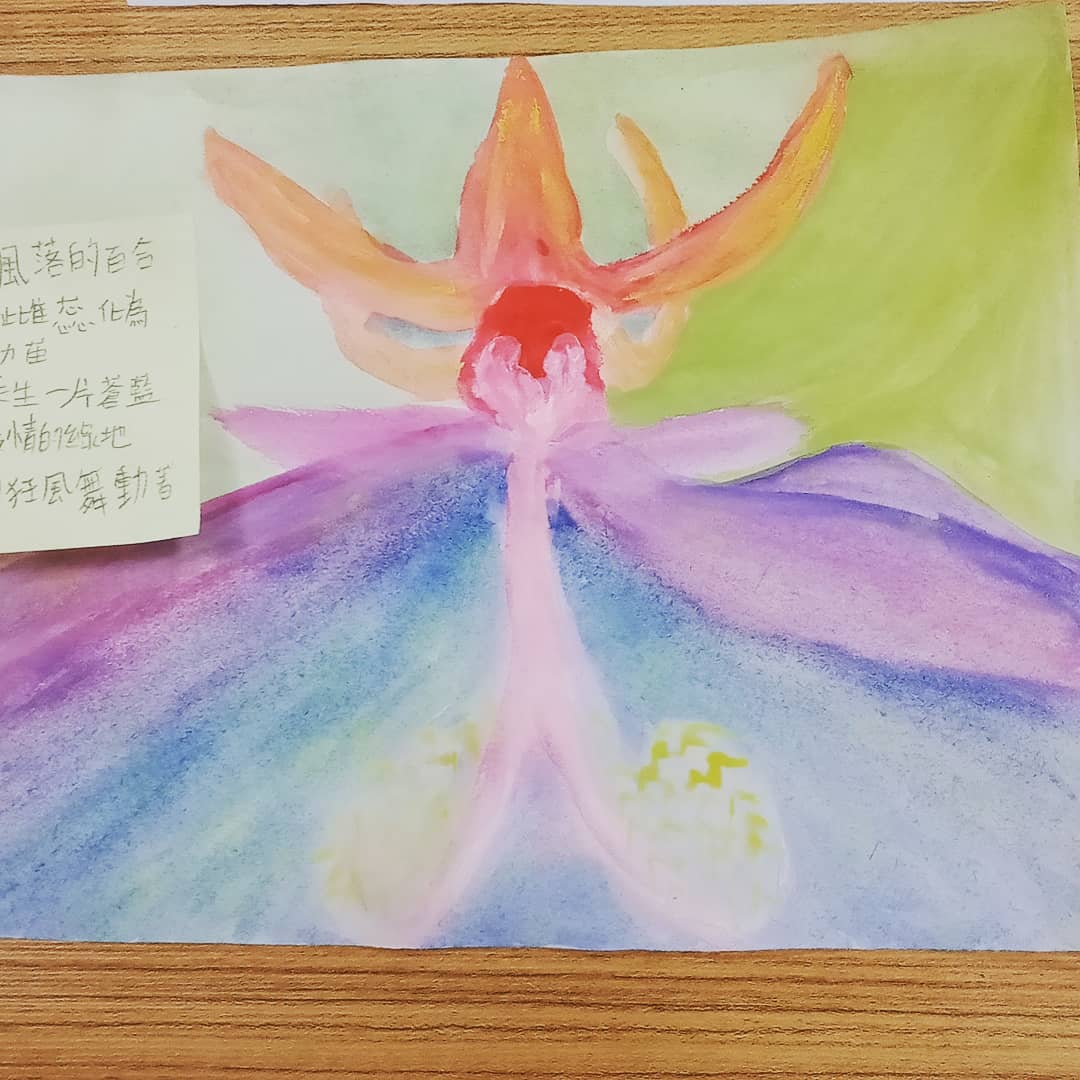 風落的百合
雌蕊化為
苗
生一片蒼藍
情的綠地
狂風舞動著